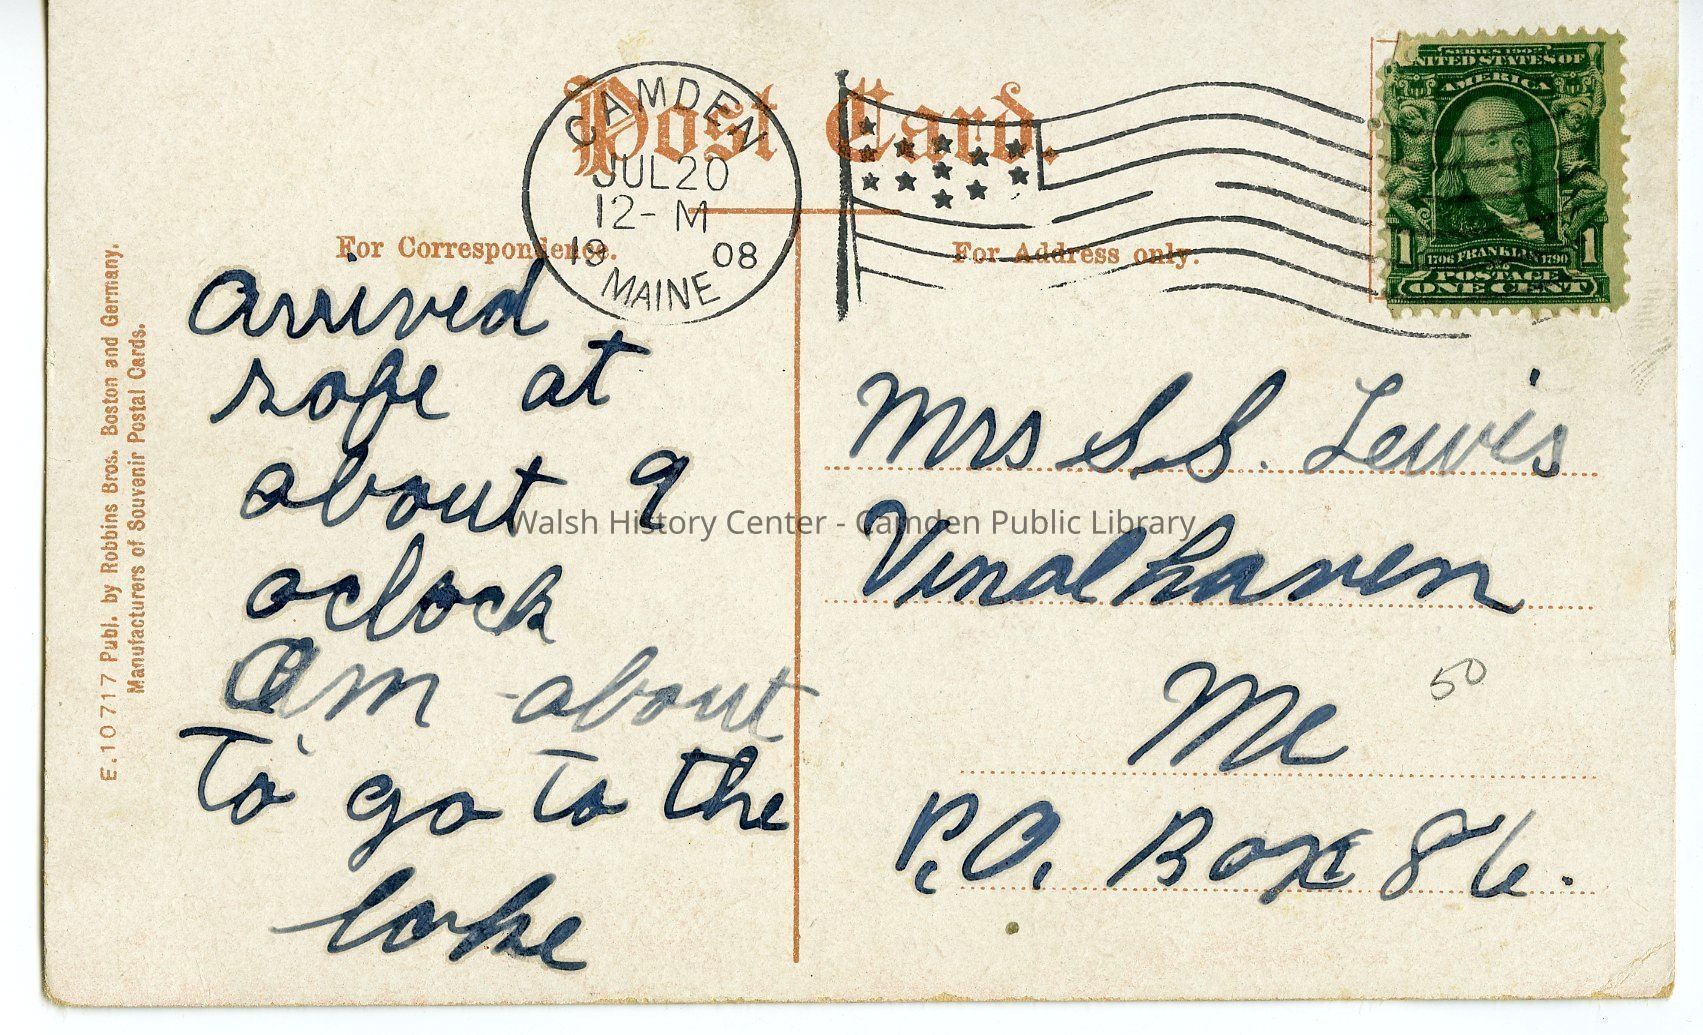 Post Card.
CAMDEN
JUL 20
12- M
19 08
MAINE
SERIES 1902
UNITED STATES OF
AMERICA
1706 FRANKLIN 1790
1 1
POSTAGE
ONE CENT
For Correspondence.
For Address only.
E. 10717 Publ. by Robbins Bros. Boston and Germany.
Manufacturers of Souvenir Postal Cards.
Arrived
safe at
about 9
oclock
Am about
to go to the
lake
Mrs S.S. Lewis
Vinalhaven
Me
50
P.O. Box 86.
Walsh History Center - Camden Public Library